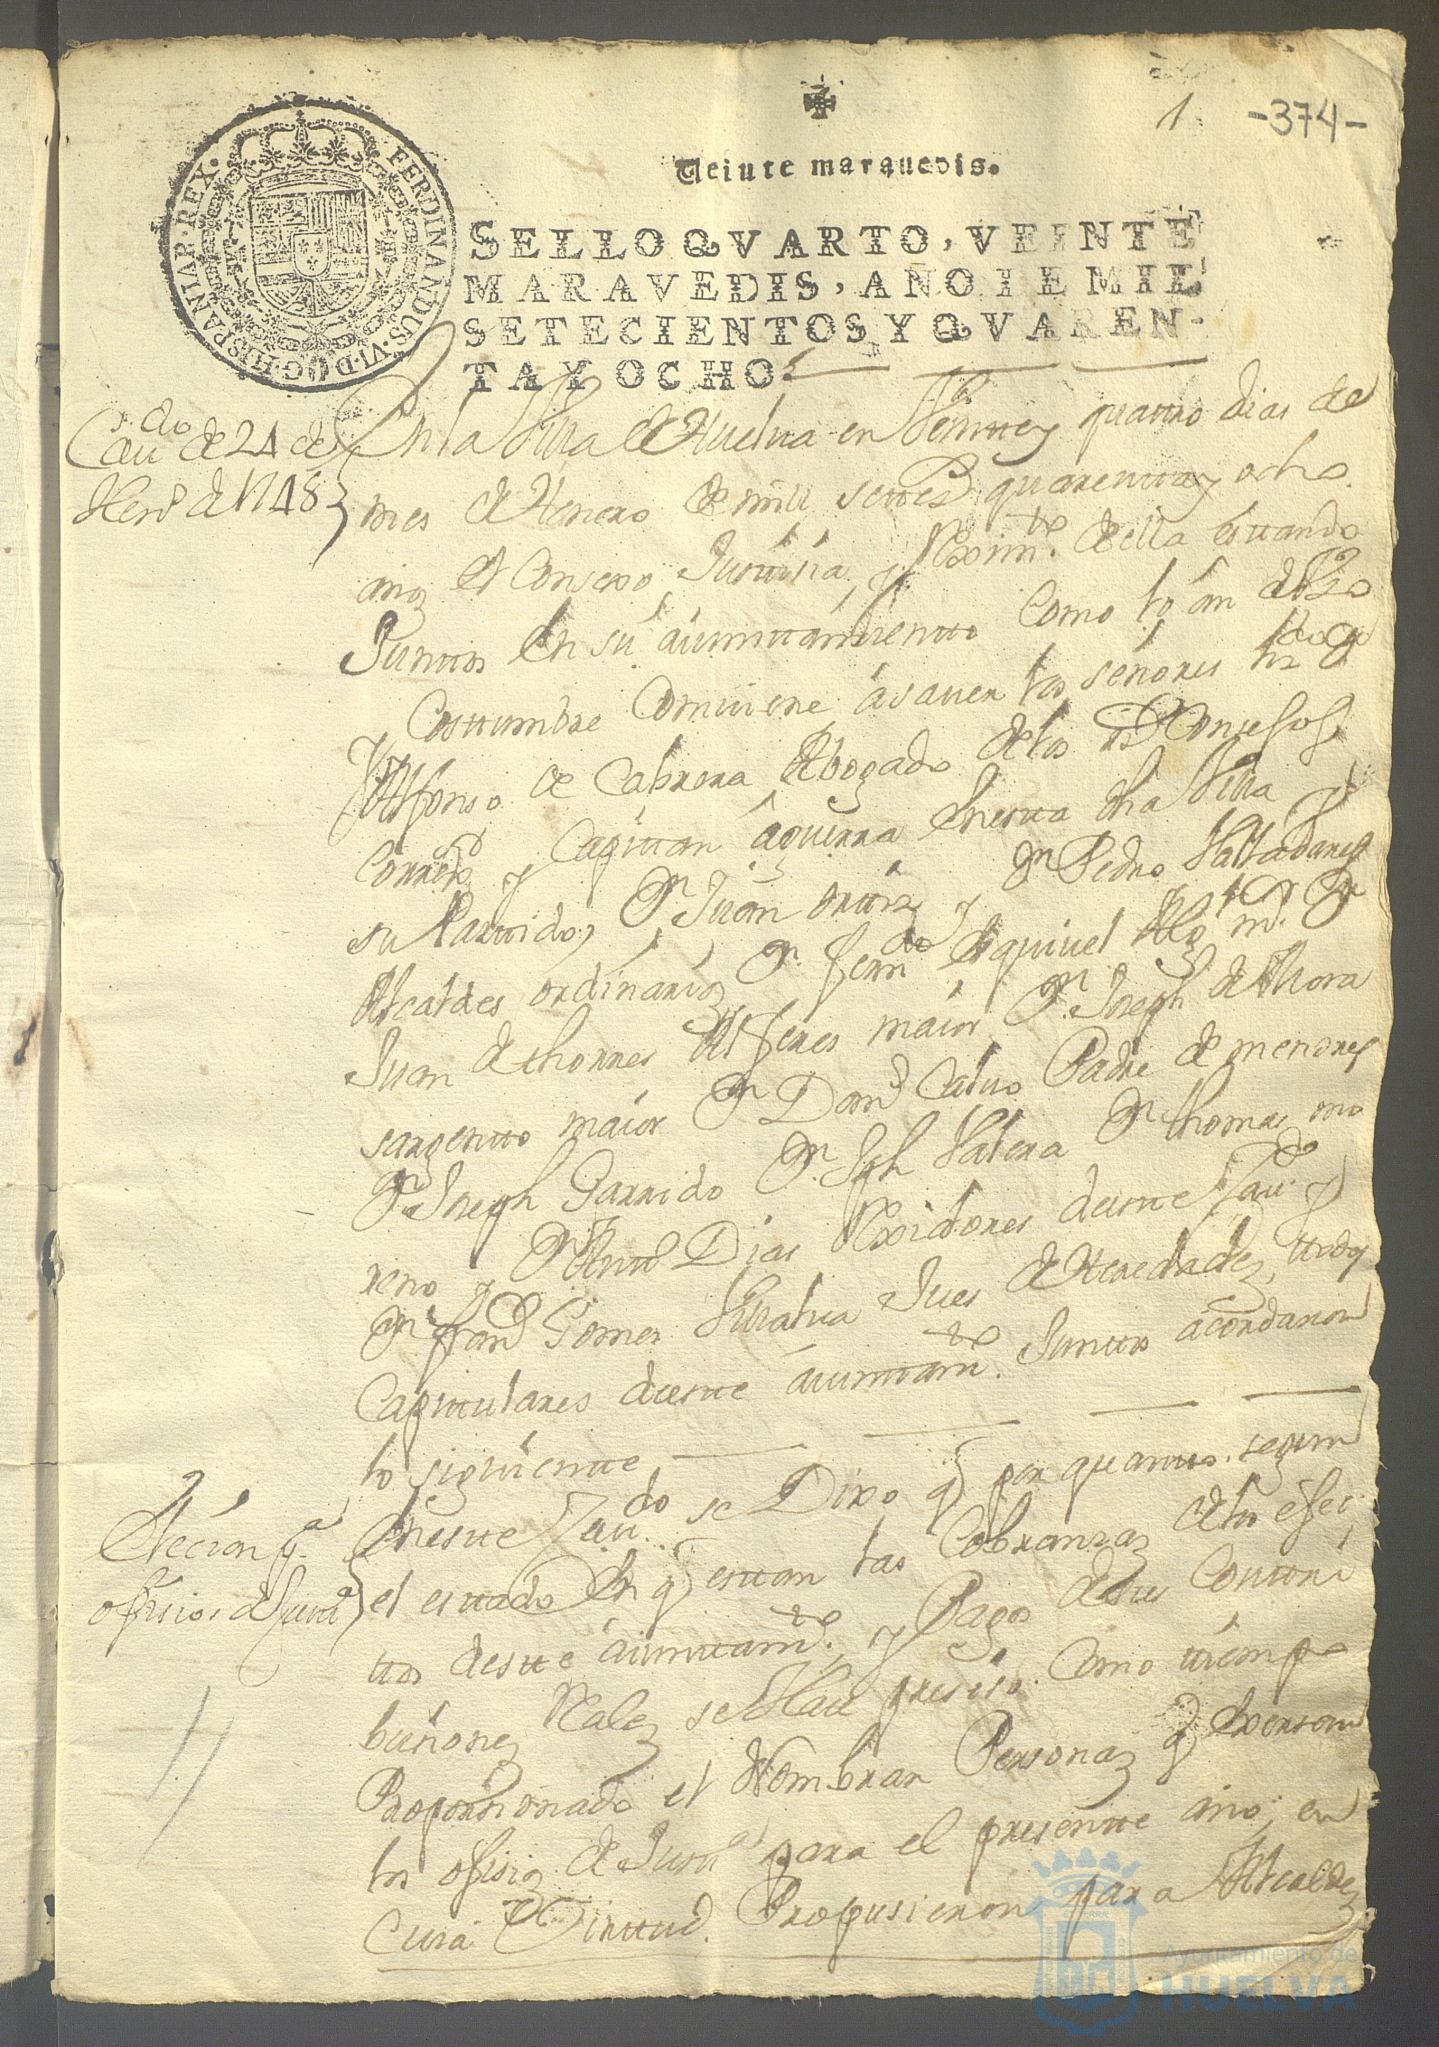 1 -374-
Veinte marauedis.
HISPANIAR·REX· FERDINANDUS·VI·D·G·
SELLO QVARTO, VEINTE
MARAVEDIS, AÑO DE MIL
SETECIENTOS Y QVAREN-
TA Y OCHO.
Cau.do de 24 de
Hen.o de 1748
En la Villa de Huelua en Veinte y quatro dias de
mes de Henero de mill settes.s quarenta y ocho
anos el Consexo, Justisia, y Reximto. della estando
Juntos en su aiuntamiento como lo án de Vzo
Costumbre Combiene ásauer los señores Lizdo. Dn.
Alfonso de Cabrera Abogado de los Rs. Consejos
Correxor. y Capitan águerra en esta dha Villa y
su Partido, Dn. Juan ortiz y Dn. Pedro Valladares
Alcaldes ordinarios Dn. Ferndo. Esquiuel Alg.l mr. Dn.
Juan de thorres Alferes maior Dn. Joseph de Mora
sargento maior Dn. Domo. Caluo Padre de menores
Dn. Joseph Garrido Dn. Jph Valera Dn. thomas mo
reno y Dn. Anto. Dias Rexidores deste Caudo. y
Dn. Franco. Gomez Villalua Jues de Heredades, ttodos
Capitulares deeste aiuntamto. Juntos acordaron
lo siguiente
Elecion pa.
ofisios de Justa.
En este Caudo. se Dixo q por quanto segun
el estado En q estan las Cobranzas de los efec
tos deste aiuntamto. y Pagos de sus Contri
buiones Rales se Hau presiso como tiempo
Proporsionado el Nombrar Personas q Exersan
los ofisios de Justa. para el presente ano, en
Cuia Virtud. Propusieron para Alcaldes
Ayuntamiento de
HUELVA